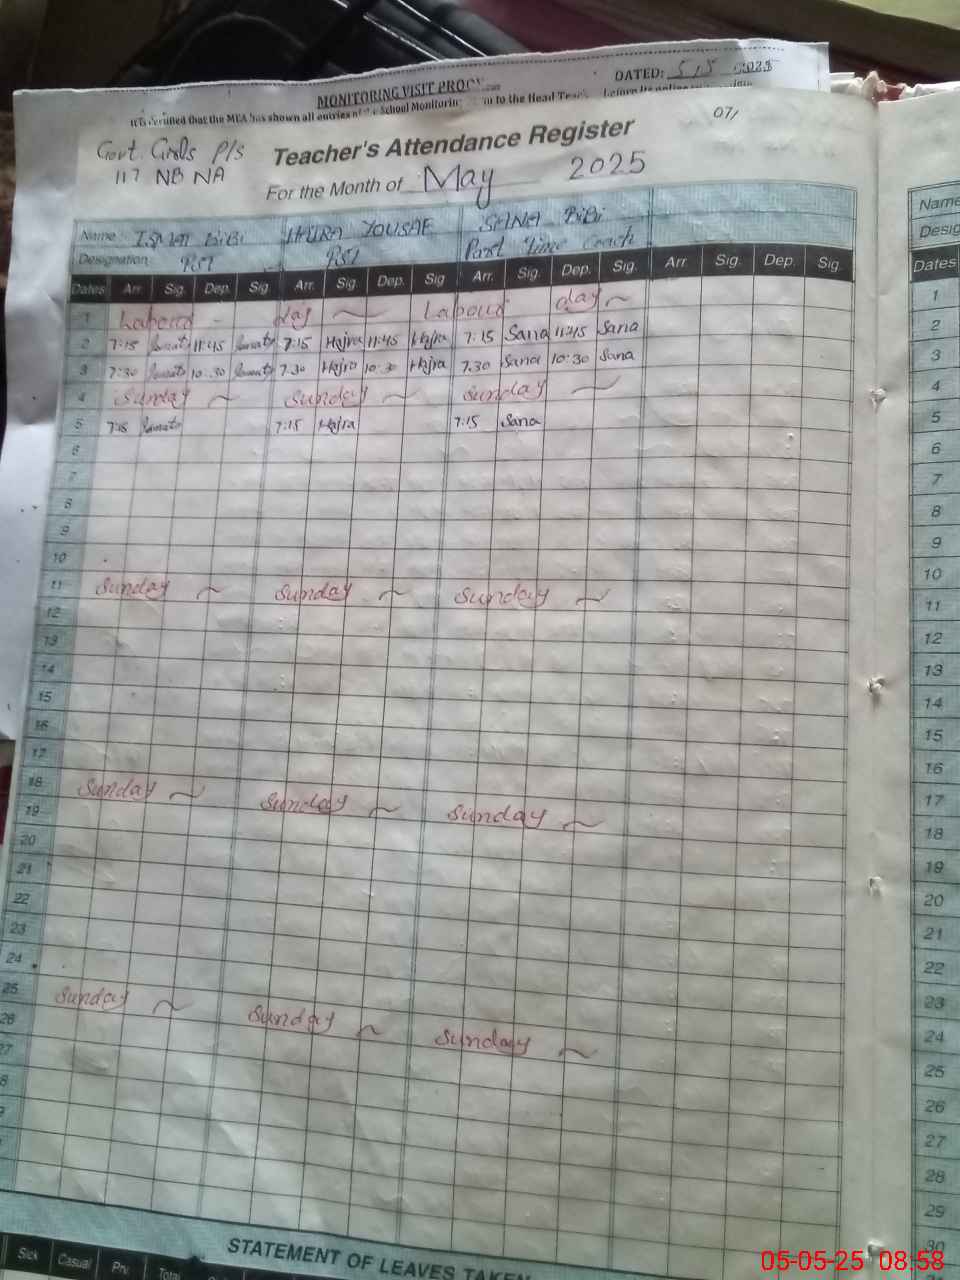 MONITORING VISIT
DATED: 5/5 2025
It is certified that the MEA has shown all entries School Monitoring to the Head before
Govt. Girls P/S
117 NB NA
Teacher's Attendance Register
07/
For the Month of May 2025
Name BiBi HAJRA YOUSAF SANA BiBi
Designation PST PST Part Time Coach
Dates Arr. Sig. Dep. Sig. Arr. Sig. Dep. Sig Arr. Sig. Dep. Sig. Arr. Sig. Dep. Sig.
1 Labour day ~ Labour day ~
2 7:15 11:45 7:15 Hajra 11:45 Hajra 7:15 Sana 11:45 Sana
3 7:30 10:30 7.30 Hajra 10:30 Hajra 7.30 Sana 10:30 Sana
4 Sunday ~ Sunday ~ Sunday ~
5 7:15 7:15 Hajra 7:15 Sana
6
7
8
9
10
11 Sunday ~ Sunday ~ Sunday ~
12
13
14
15
16
17
18 Sunday ~ Sunday ~ Sunday ~
19
20
21
22
23
24
25 Sunday ~ Sunday ~ Sunday ~
26
27
STATEMENT OF LEAVES TAKEN
Sick Casual Prv. Total
Name
Desig
Dates
1
2
3
4
5
6
7
8
9
10
11
12
13
14
15
16
17
18
19
20
21
22
23
24
25
26
27
28
29
30
05-05-25 08:58